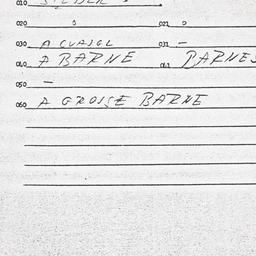 010
020 0 021 0
030 A 031 –
040 A BARNE 041 BARNES
050 –
060 A GROSSE BARNE